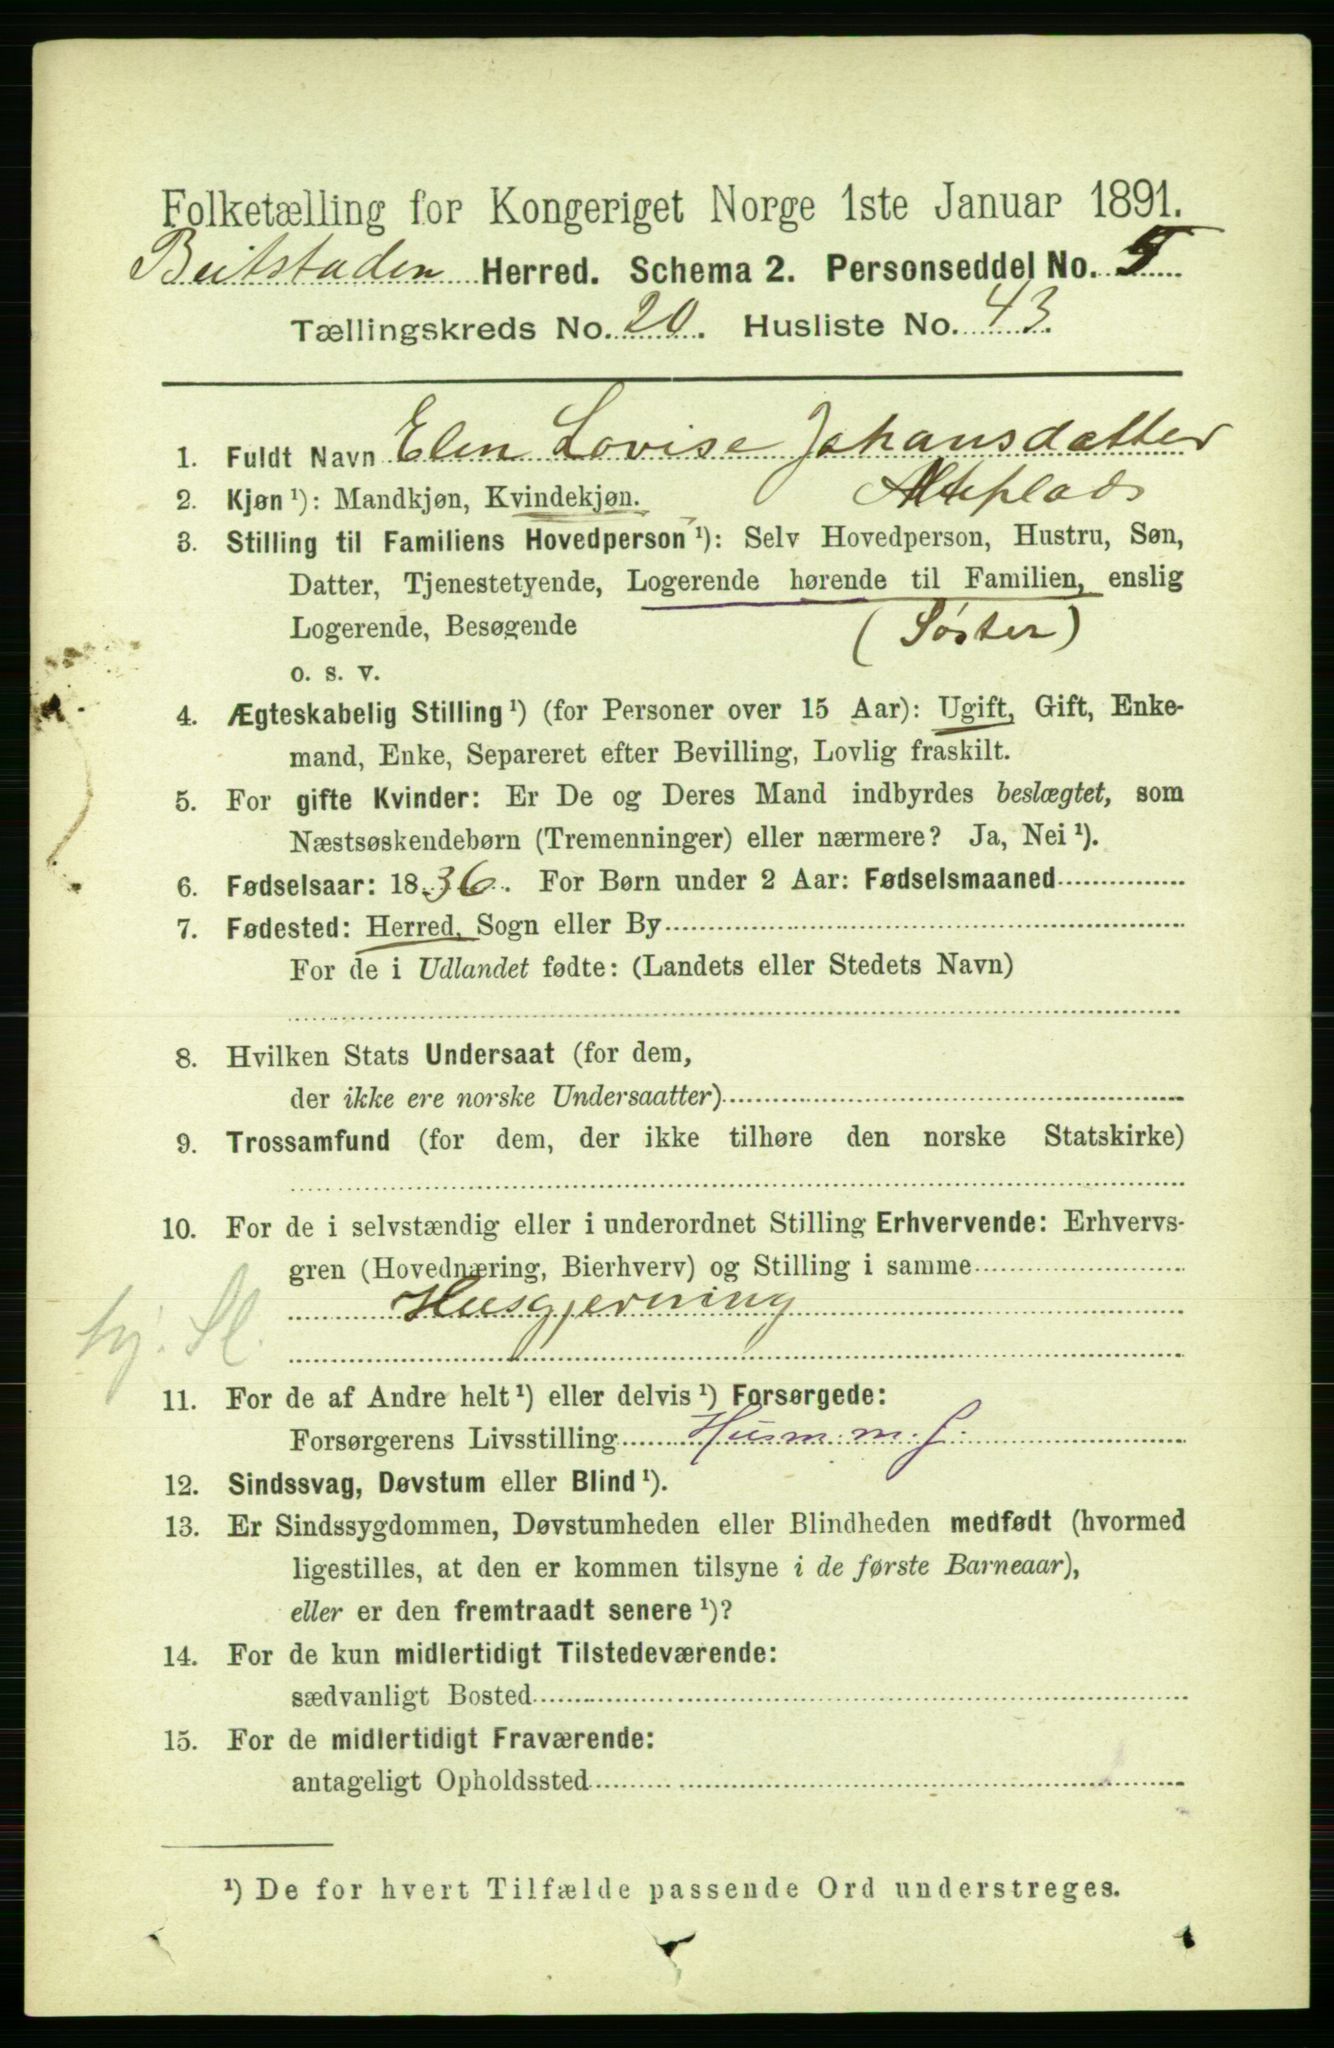 Folketælling for Kongeriget Norge 1ste Januar 1891.
Beitstaden Herred. Schema 2. Personseddel No. 5
Tællingskreds No. 20. Husliste No. 43.
1. Fuldt Navn Elen Lovise Johansdatter
2. Kjøn ¹): Mandkjøn, Kvindekjøn.
3. Stilling til Familiens Hovedperson ¹): Selv Hovedperson, Hustru, Søn,
Datter, Tjenestetyende, Logerende hørende til Familien, enslig
Logerende, Besøgende (Søster)
o. s. v.
4. Ægteskabelig Stilling ¹) (for Personer over 15 Aar): Ugift, Gift, Enke-
mand, Enke, Separeret efter Bevilling, Lovlig fraskilt.
5. For gifte Kvinder: Er De og Deres Mand indbyrdes beslægtet, som
Næstsøskendebørn (Tremenninger) eller nærmere? Ja, Nei ¹).
6. Fødselsaar: 1836. For Børn under 2 Aar: Fødselsmaaned
7. Fødested: Herred, Sogn eller By
For de i Udlandet fødte: (Landets eller Stedets Navn)
8. Hvilken Stats Undersaat (for dem,
der ikke ere norske Undersaatter)
9. Trossamfund (for dem, der ikke tilhøre den norske Statskirke)
10. For de i selvstændig eller i underordnet Stilling Erhvervende: Erhvervs-
gren (Hovednæring, Bierhverv) og Stilling i samme
Husgjerning
tj. Sl.
11. For de af Andre helt ¹) eller delvis ¹) Forsørgede:
Forsørgerens Livsstilling Husm. m. J.
12. Sindssvag, Døvstum eller Blind ¹).
13. Er Sindssygdommen, Døvstumheden eller Blindheden medfødt (hvormed
ligestilles, at den er kommen tilsyne i de første Barneaar),
eller er den fremtraadt senere ¹)?
14. For de kun midlertidigt Tilstedeværende:
sædvanligt Bosted
15. For de midlertidigt Fraværende:
antageligt Opholdssted
¹) De for hvert Tilfælde passende Ord understreges.